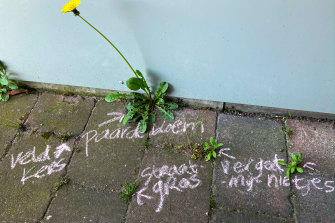 Veld
kers
paardebloem
straat
gras
Vergeet
mij
nietjes